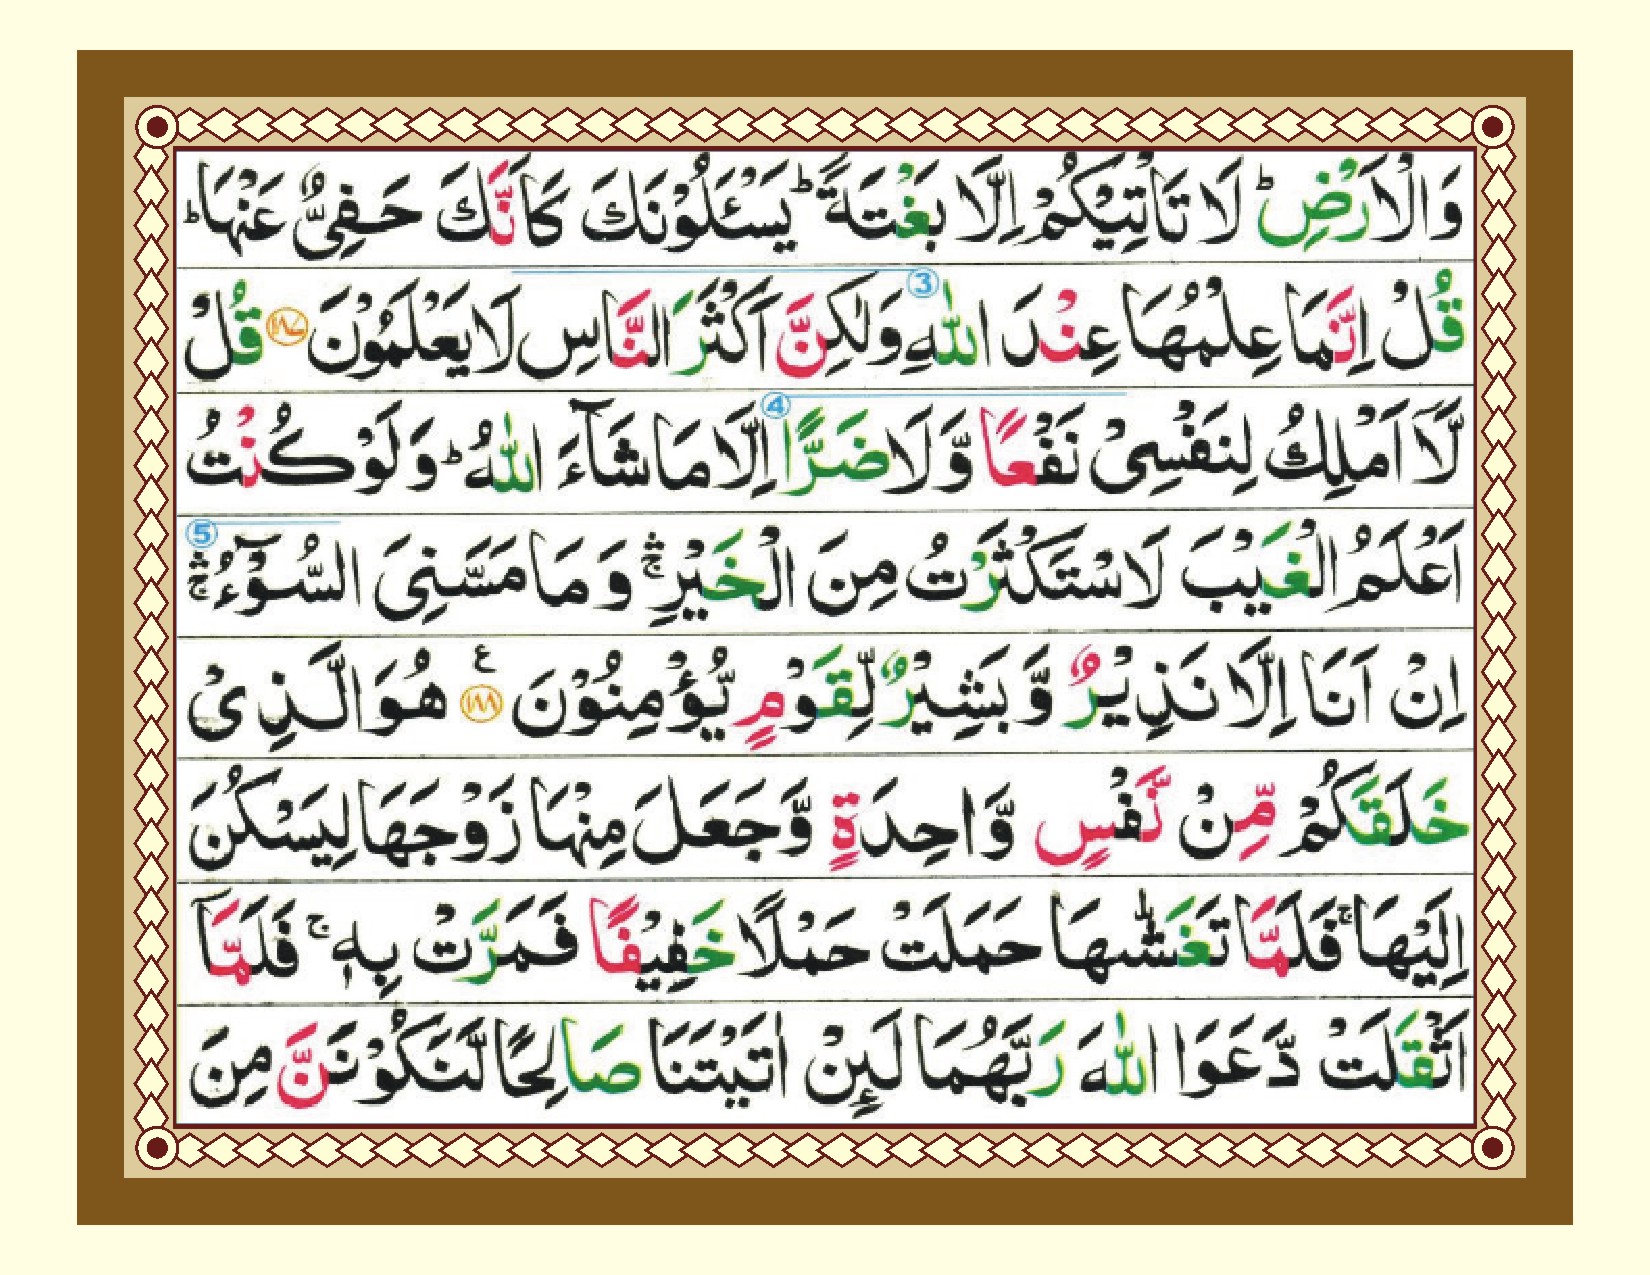 وَالْاَرْضِ ؕ لَا تَاْتِيْكُمْ اِلَّا بَغْتَةً ؕ يَسْـَٔلُوْنَكَ كَاَنَّكَ حَفِیٌّ عَنْهَا ؕ
قُلْ اِنَّمَا عِلْمُهَا عِنْدَ اللّٰهِ ③ وَلٰكِنَّ اَكْثَرَ النَّاسِ لَا يَعْلَمُوْنَ ١٨٧ قُلْ
لَّاۤ اَمْلِكُ لِنَفْسِیْ نَفْعًا وَّلَا ضَرًّا ④ اِلَّا مَا شَآءَ اللّٰهُ ؕ وَلَوْ كُنْتُ
اَعْلَمُ الْغَيْبَ لَاسْتَكْثَرْتُ مِنَ الْخَيْرِ ۛۚ وَمَا مَسَّنِیَ السُّوْٓءُ ۛۚ ⑤
اِنْ اَنَا اِلَّا نَذِيْرٌ وَّبَشِيْرٌ لِّقَوْمٍ يُّؤْمِنُوْنَ ١٨٨ ع هُوَ الَّذِیْ
خَلَقَكُمْ مِّنْ نَّفْسٍ وَّاحِدَةٍ وَّجَعَلَ مِنْهَا زَوْجَهَا لِيَسْكُنَ
اِلَيْهَا ۚ فَلَمَّا تَغَشّٰىهَا حَمَلَتْ حَمْلًا خَفِيْفًا فَمَرَّتْ بِهٖ ۚ فَلَمَّاۤ
اَثْقَلَتْ دَّعَوَا اللّٰهَ رَبَّهُمَا لَئِنْ اٰتَيْتَنَا صَالِحًا لَّنَكُوْنَنَّ مِنَ